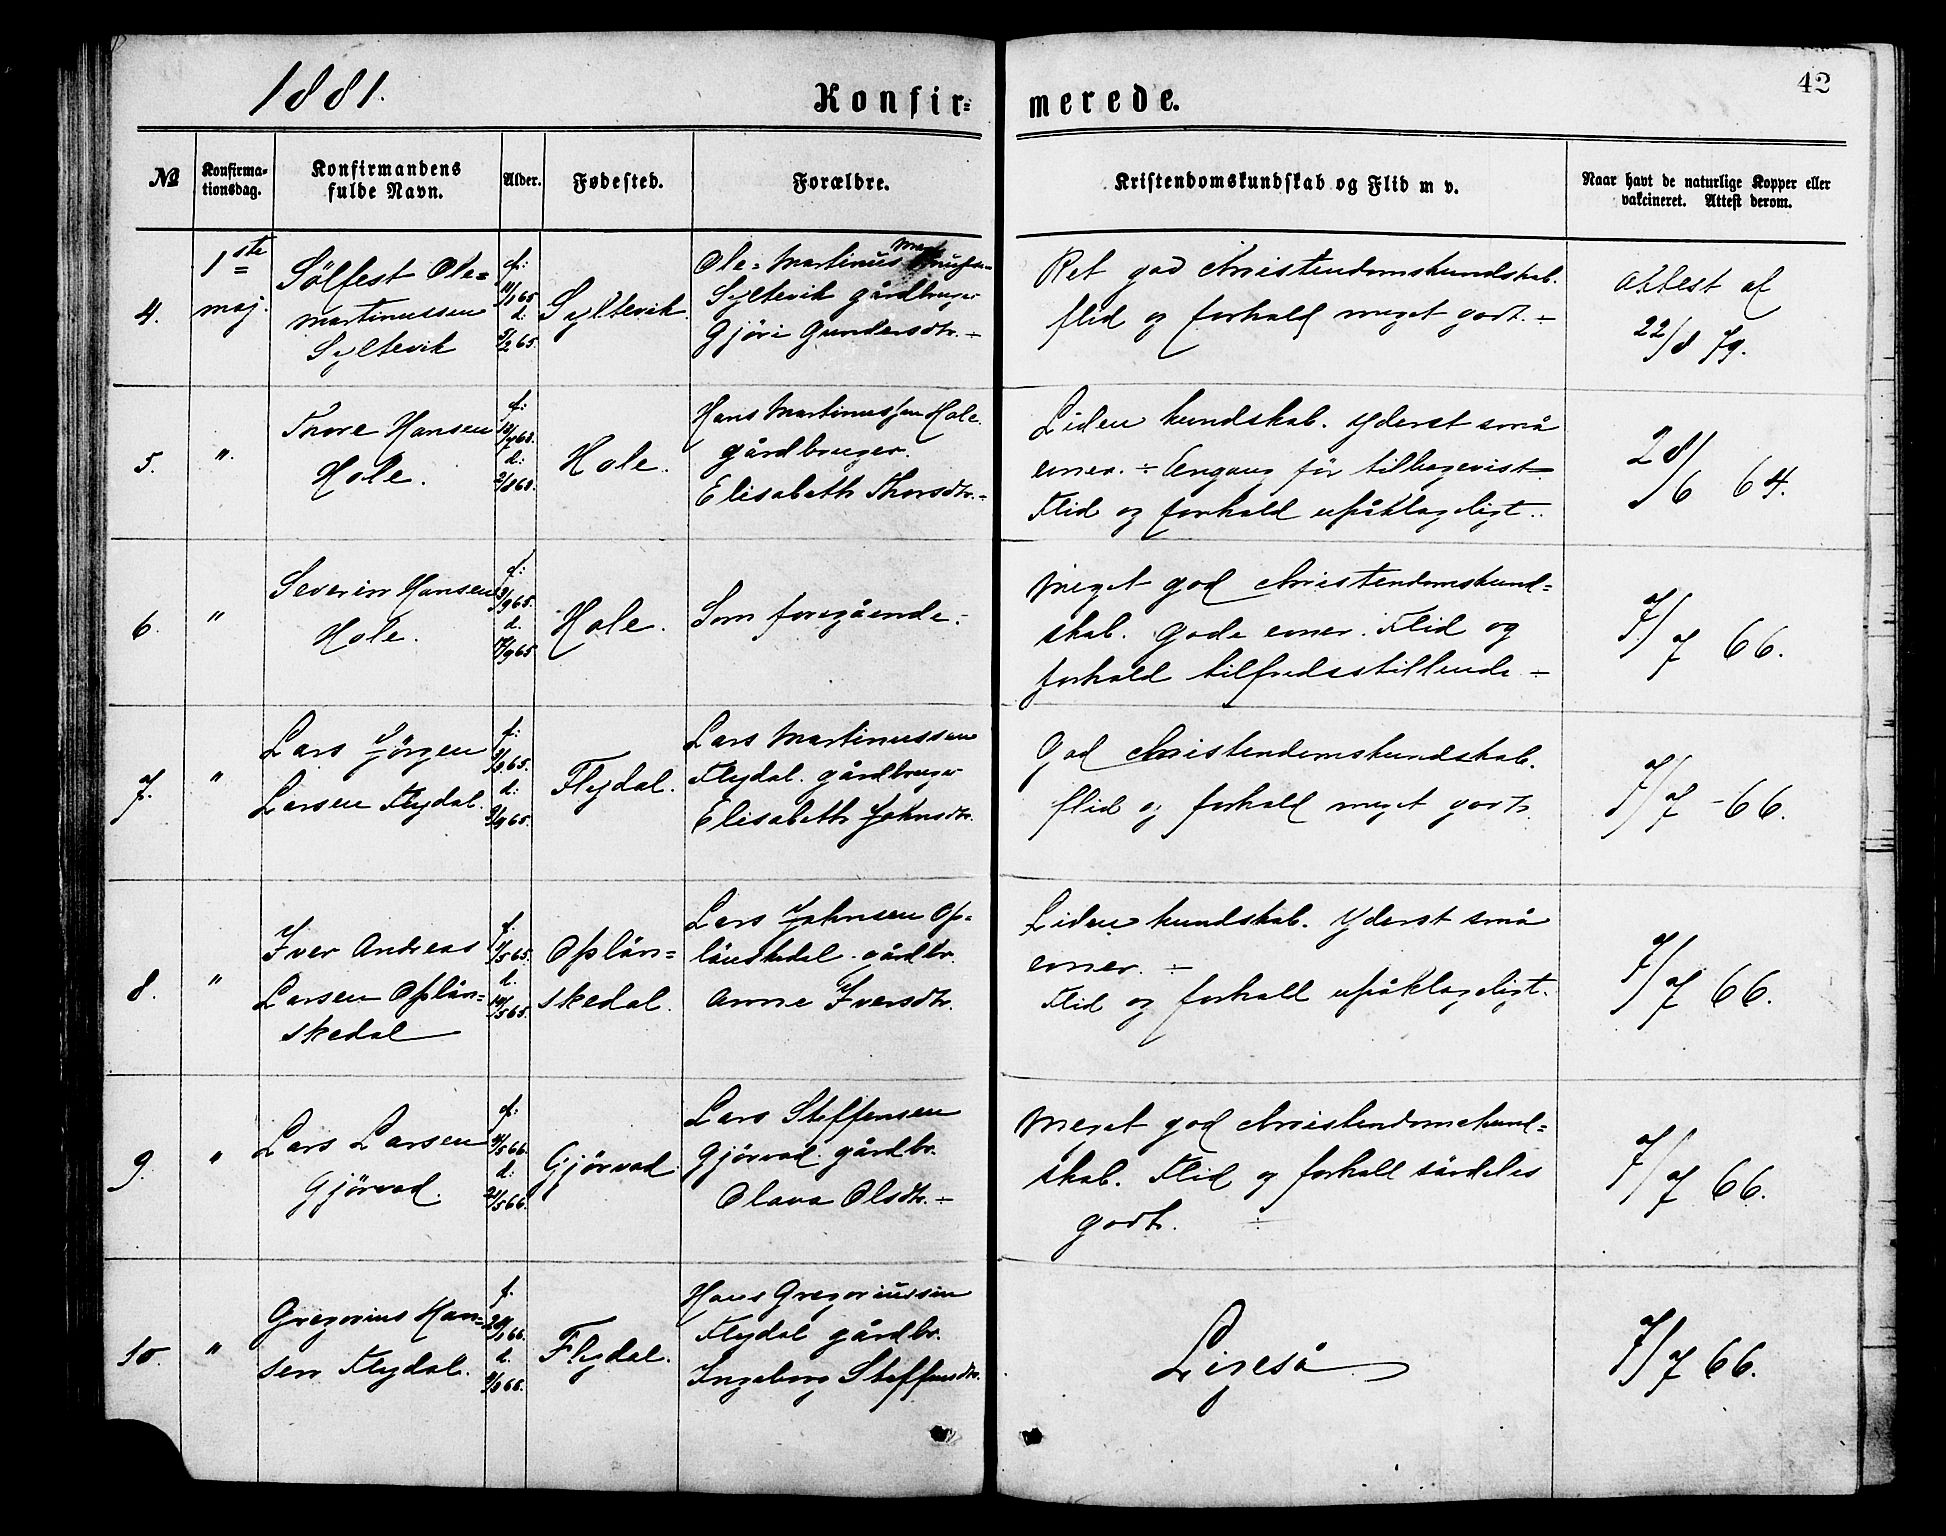 1881.
Konfir=
merede.
42
№
Konfirma-
tionsdag.
Konfirmandens
fulde Navn.
Alder.
Fødested.
Forældre.
Kristendomskundskab og Flid m v.
Naar havt de naturlige Kopper eller
vakcineret. Attest derom.
4.
1ste
maj.
Sølfest Ole=
martinussen
Syltevik
f:
d:
Syltevik
Ole= Martinus
Syltevik gårdbruger
Gjøri Gundersdtr. ÷
Ret god christendomskundskab.
flid og forhold meget godt. ÷
Attest af
22/8 79.
5.
"
Thore Hansen
Hole.
f:
d:
Hole.
Hans Martinussen Hole.
gårdbruger.
Elisabeth Thorsdtr. ÷
Liden kundskab. Yderst små
evner. ÷ Engang før tilbagevist.
Flid og forhold upåklageligt. ÷
28/6 64.
6.
"
Severin Hansen
Hole.
f:
d.
Hole.
Som foregående ÷
Meget god christendomskund=
skab. gode evner. Flid og
forhold tilfredsstillende ÷
7/7 66.
7.
"
Lars Jørgen
Larsen Flydal.
f:
d:
Flydal.
Lars Martinussen
Flydal. gårdbruger
Elisabeth Johnsdtr.
God christendomskundskab.
flid og forhold meget godt.
7/7 - 66.
8.
"
Iver Andreas
Larsen Oplän=
skedal
f.
d.
Oplän=
skedal.
Lars Johnsen Op=
länskedal. gårdbr.
Anne Iversdtr.
Liden kundskab. Yderst små
evner. ÷
Flid og forhold upåklageligt.
7/7 66.
9.
"
Lars Larsen
Gjørvad.
f:
d:
Gjørvad.
Lars Steffensen
Gjørvad. gårdbr.
Olava Olsdtr. ÷
Meget god christendomskund=
skab. Flid og forhold særdeles
godt. ÷
7/7 66.
10.
"
Gregorius Han=
sen Flydal.
f.
d.
Flydal.
Hans Gregoriussen
Flydal gårdbr.
Ingeborg Steffensdtr.
Ligeså
7/7 66.